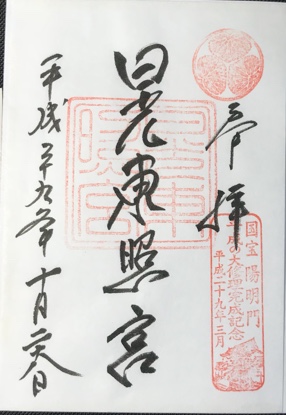 奉拝
国宝 陽明門
平成の大修理完成記念
平成二十九年三月
日光東照宮
東照宮
平成二十九年十月二十八日